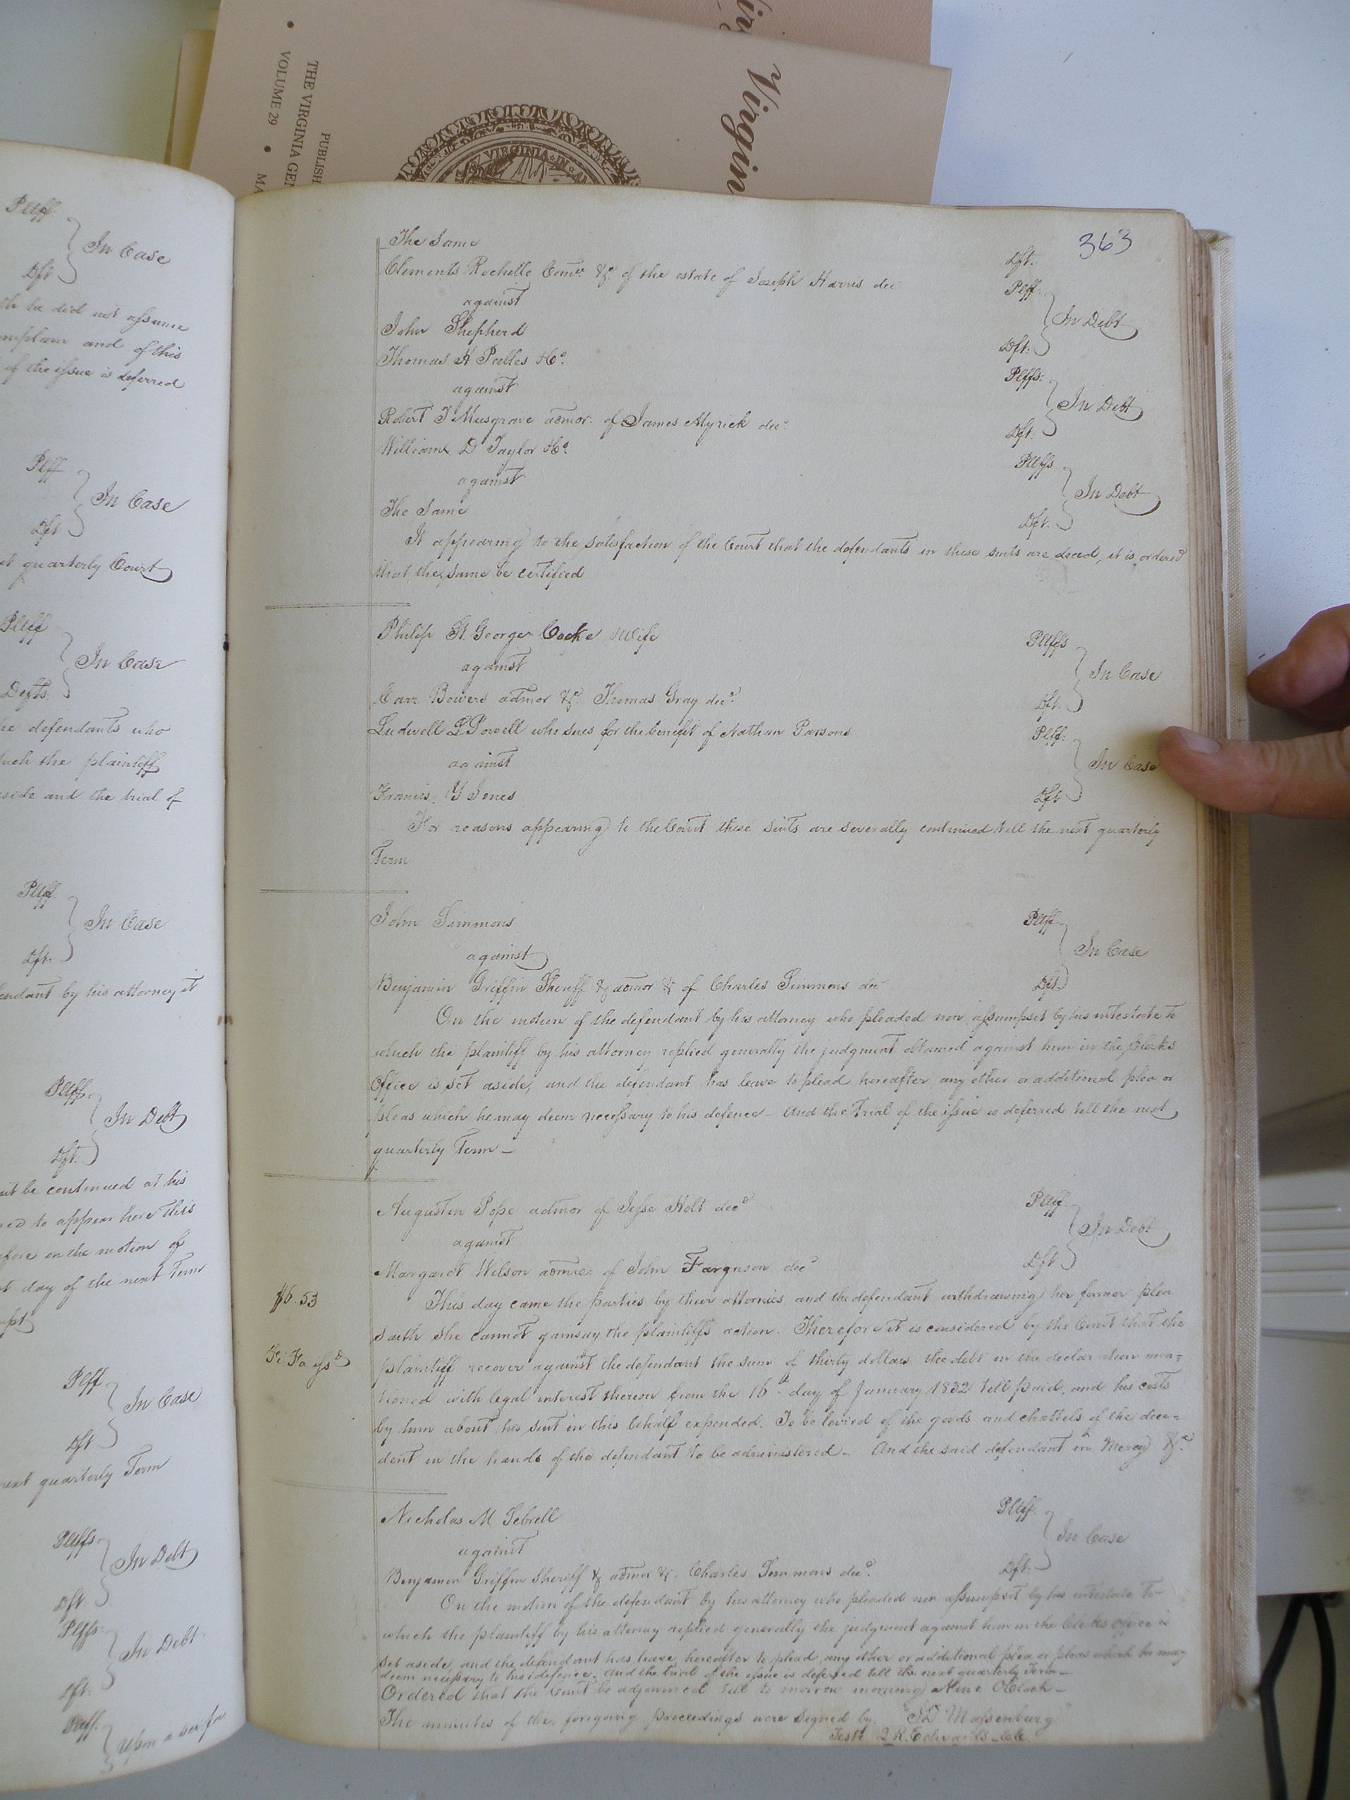 Virgin
PUBLISH
THE VIRGINIA GEN
VOLUME 29 • MA
VIRGINIA
Plff
In Case
Dft
he did not assume
and of this
of the issue is deferred
Plff
In Case
Dft
quarterly Court
Plff
In Case
Defts.
defendants who
the plaintiff
aside and the trial of
Plff
In Case
Dft.
by his attorney it
Plffs
In Debt
Dft.
be continued at his
to appear here this
on the motion of
day of the next Term
Plff
In Case
Dft
next quarterly Term
Plffs
In Debt
Dft.
Plffs.
In Debt
Dft.
Plff.
upon a
363
The Same
Dft.
Clements Rochelle Comr. &c. of the estate of Joseph Harris dec
Plff.
against
In Debt
John Shepherd
Dft.
Thomas H Pebles &c.
Plffs.
against
In Debt
Robert T Musgrave admor. of James Myrick decd.
Dft.
William D Taylor &c.
Plffs
against
In Debt
The Same
Dft.
It appearing to the satisfaction of the Court that the defendants in these suits are dead, it is ordered
that the same be certified
Philip St. George Cocke & Wife
Plffs
against
In Case
Carr Bowers admor &c. Thomas Gray decd.
Dft.
Ludwell L Powell who sues for the benefit of Nathan Parsons
Plff.
against
In Case
Francis Y Jones
Dft
For reasons appearing to the Court these suits are severally continued till the next quarterly
Term
John Simmons
Plff
against
In Case
Benjamin Griffin Sheriff & admor &c of Charles Simmons dec
Dft.
On the motion of the defendant by his attorney who pleaded non assumpset by his intestate to
which the plaintiff by his attorney replied generally the judgment obtained against him in the Clerks
Office is set aside, and the defendant has leave to plead hereafter any other or additional plea or
pleas which he may deem necessary to his defence – And the trial of the issue is deferred till the next
quarterly Term –
Augustin Pope admor of Jesse Holt decd
Plff.
against
In Debt
Margaret Wilson admix of John Farguson decd
Dft
$6.53
This day came the parties by their attornies and the defendant withdrawing her former plea
saith she cannot gainsay the plaintiffs action. Therefore it is considered by the Court that the
Fi: Fa issd
plaintiff recover against the defendant the sum of thirty dollars the debt in the declaration men=
tioned with legal interest thereon from the 16th day of January 1832 till paid, and his costs
by him about his suit in this behalf expended. To be levied of the goods and chattels of the dece=
dent in the hands of the defendant to be administered – And the said defendant in mercy &c.
Nicholas M Sebrell
Plff.
against
In Case
Benjamin Griffin Sheriff & admor &c. Charles Simmons decd.
Dft.
On the motion of the defendant by his attorney who pleaded non assumpsit by his intestate to
which the plaintiff by his attorney replied generally the judgment against him in the Clerks office is
set aside, and the defendant has leave hereafter to plead any other or additional plea or pleas which he may
deem necessary to his defence. and the trial of the issue is deferred till the next quarterly Term –
Ordered that the Court be adjourned till to morrow morning Nine OClock –
The minutes of the foregoing proceedings were signed by "JD Massenburg"
Teste L R. Edwards